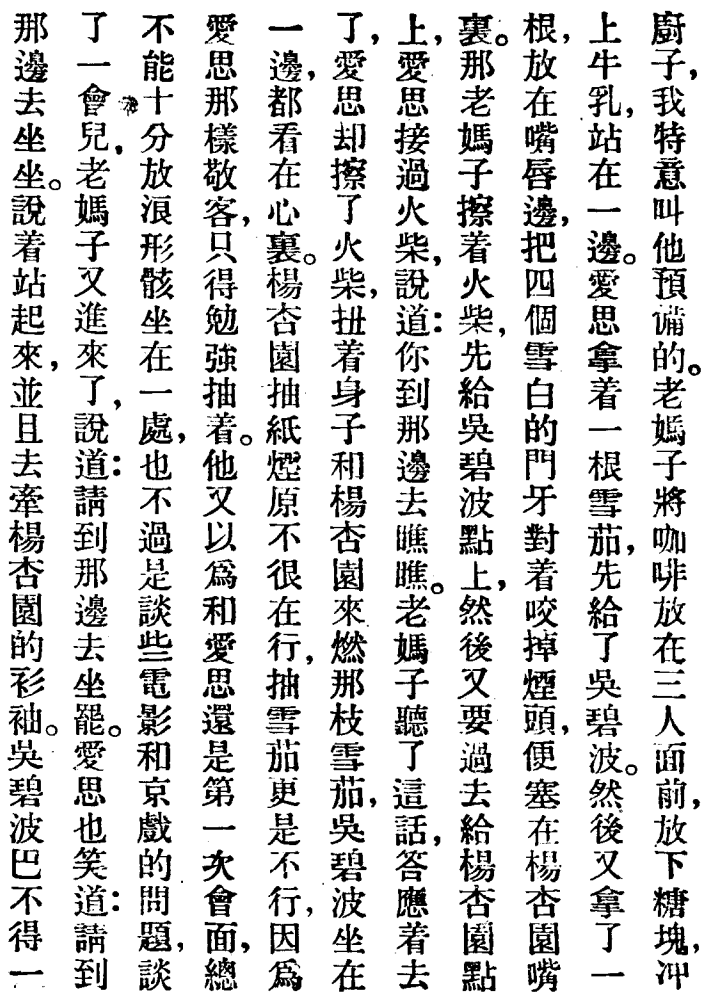 廚子，我特意叫他預備的。老媽子將咖啡放在三人面前，放下糖塊，冲
上牛乳，站在一邊。愛思拿着一根雪茄，先給了吳碧波。然後又拿了一
根，放在嘴唇邊，把四個雪白的門牙對着咬掉煙頭，便塞在楊杏園嘴
裏。那老媽子擦着火柴，先給吳碧波點上，然後又要過去給楊杏園點
上，愛思接過火柴，說道：你到那邊去瞧瞧。老媽子聽了這話，答應着去
了，愛思却擦了火柴，扭着身子和楊杏園來燃那枝雪茄，吳碧波坐在
一邊，都看在心裏。楊杏園抽紙煙原不很在行，抽雪茄更是不行，因爲
愛思那樣敬客，只得勉強抽着。他又以爲和愛思還是第一次會面，總
不能十分放浪形骸坐在一處，也不過是談些電影和京戲的問題，談
了一會兒，老媽子又進來了，說道：請到那邊去坐罷。愛思也笑道：請到
那邊去坐坐。說着站起來，並且去牽楊杏園的衫袖。吳碧波巴不得一